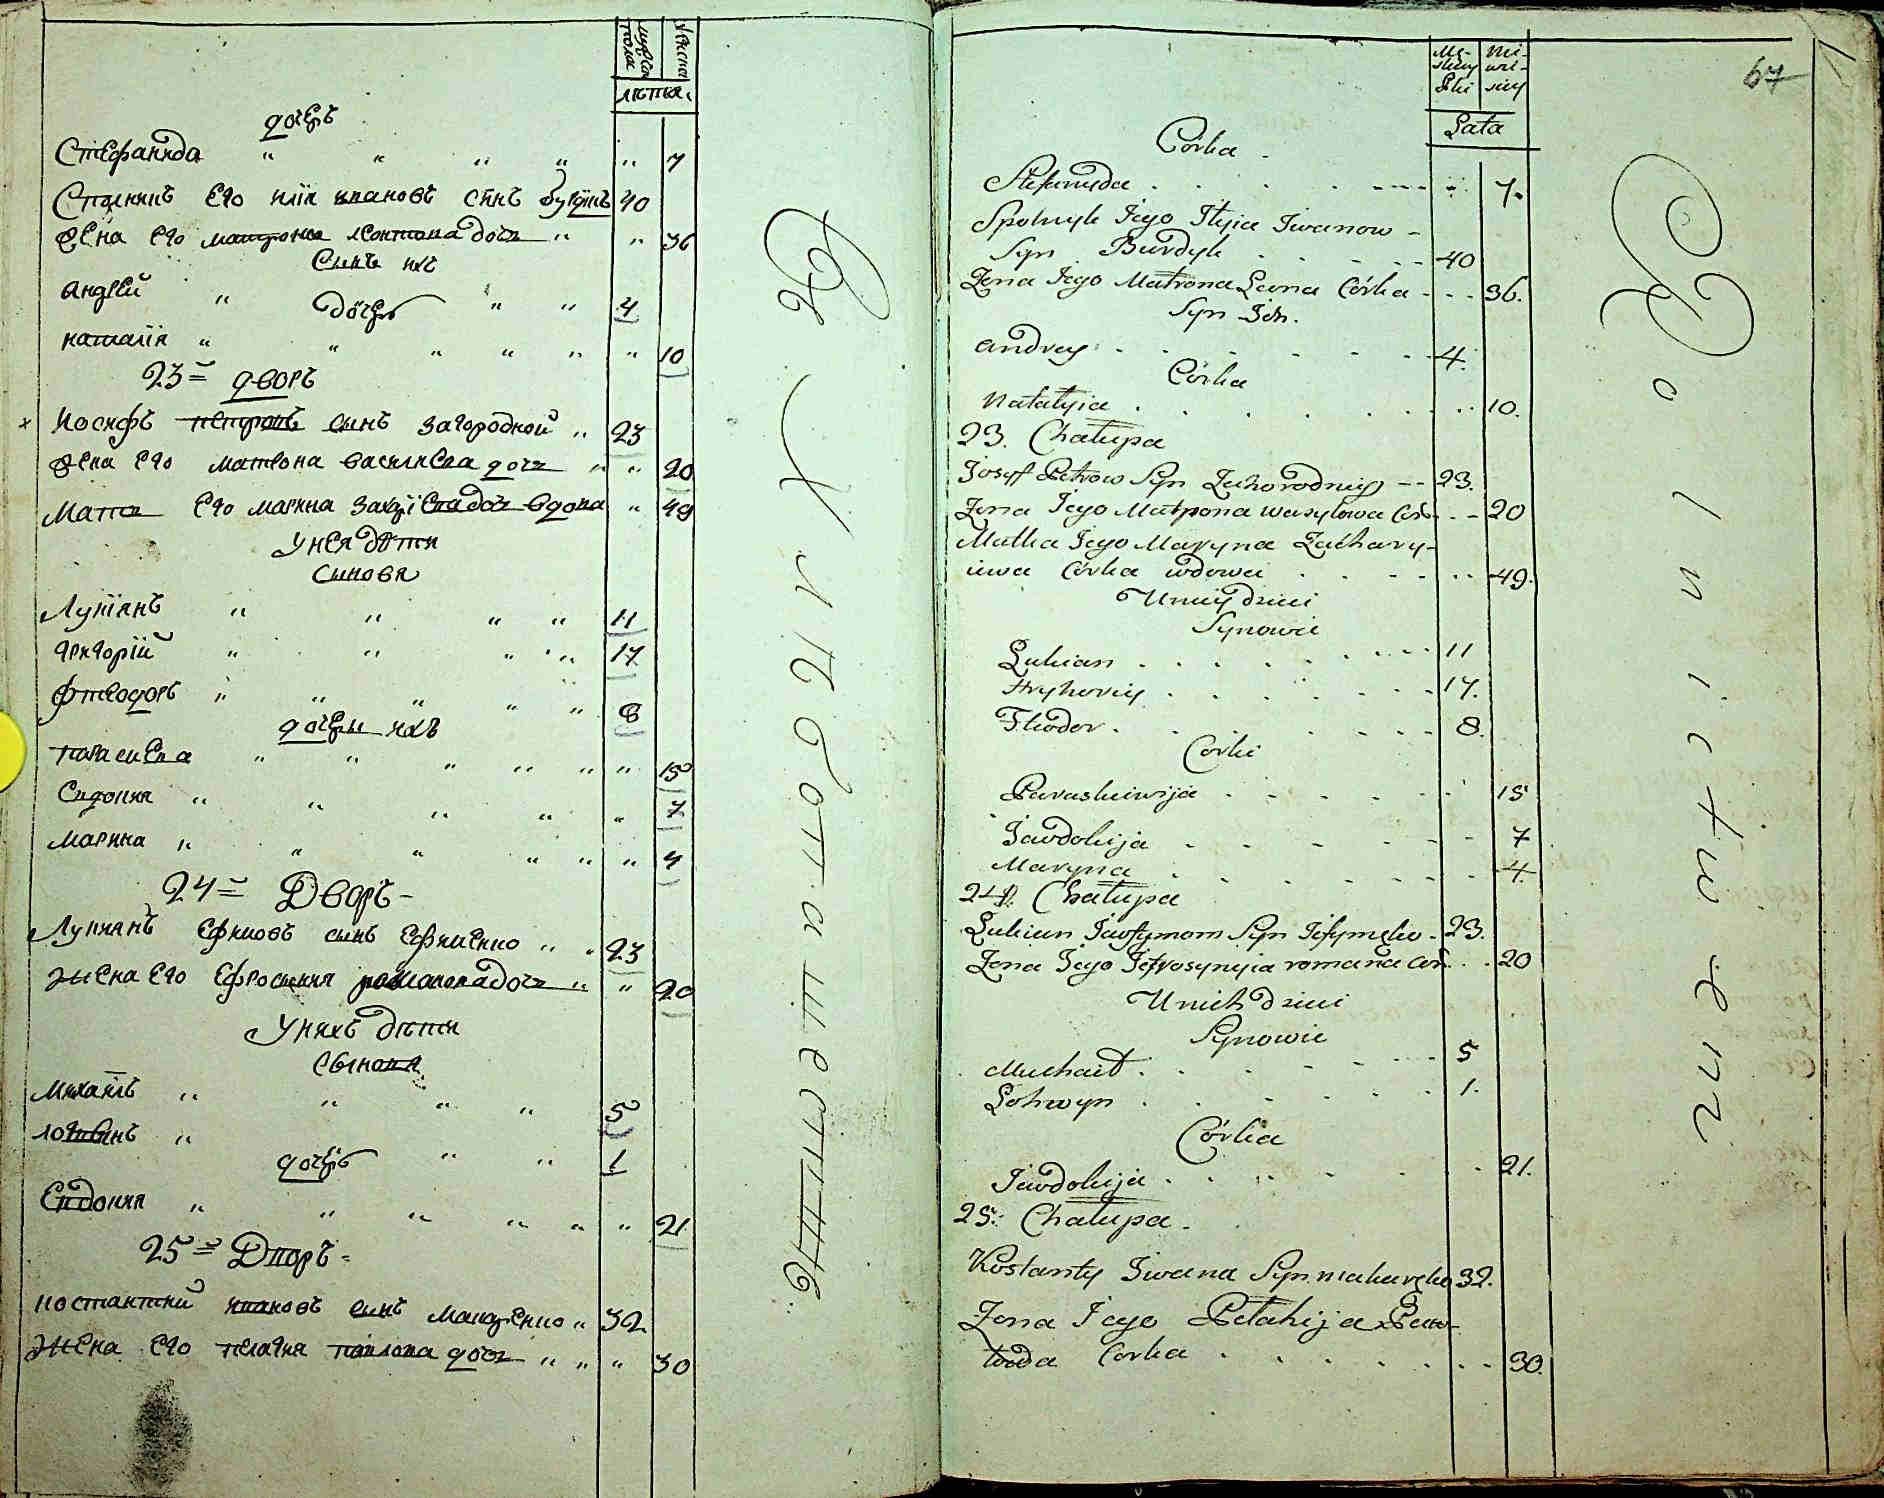 мужска пола
женска
лѣта.
дочерь
Стефанида 7
Спалникъ его илiя ивановъ сынъ бурдикъ 40
жена его матрона леонтова дочь 36
Сынъ ихъ
андрей 4
дочерь
наталiя 10
23 = дворъ
Иосифъ петровъ сынъ загородной 23
жена его матрона василиева дочь 20
Мать его марина захрiева дочь вдова 49
у нея дѣти
сыновя
Лукiянъ 11
григорiй 17
Фтеодоръ 8
дочеры ихъ
параскева 15
Евдокия 7
марина 4
24 = Дворъ
Лукиянъ Ефимовъ сынъ Ефименко 23
жена его Ефросиния романова дочь 20
у нихъ дѣти
сынови
михаилъ 5
логвинъ 1
дочерь
Евдокия 21
25 = Дворъ
костантий ивановъ сынъ макаренко 32
жена его пелагия павлова дочь 30
67
Męskiey Płci
Niewieściey
Lata
Córka
Stefanyda 7.
Spolnyk Jego Ilyia Iwanow
Syn Burdyk 40
Zona Jego Matrona Leona Córka 36.
Syn Ich.
andrey 4.
Córka
Natalyia 10.
23. Chałupa
Josyff Petrow Syn Zahorodniy 23.
Zona Jego Matrona wasylowa Cór. 20
Matka Jego Maryna Zachary-
iewa Córka wdowa 49.
U niey dzieci
Synowie
Lukian 11
Hryhoriy 17.
Fteodor 8.
Corki
Paraskiewija 15
Jawdokija 7
Maryna 4.
24. Chałupa
Lukian Jawfymow Syn Jefymęko 23.
Zona Jego Jefrosynyia romana Cór. 20
U nich dzieci
Synowie
Michaił 5
Lohwyn 1.
Córka
Jawdokija 21.
25. Chałupa
Kostanty Iwana Syn makaręko 32.
Zona Jego Pelahija Paw-
łowa Corka 30.